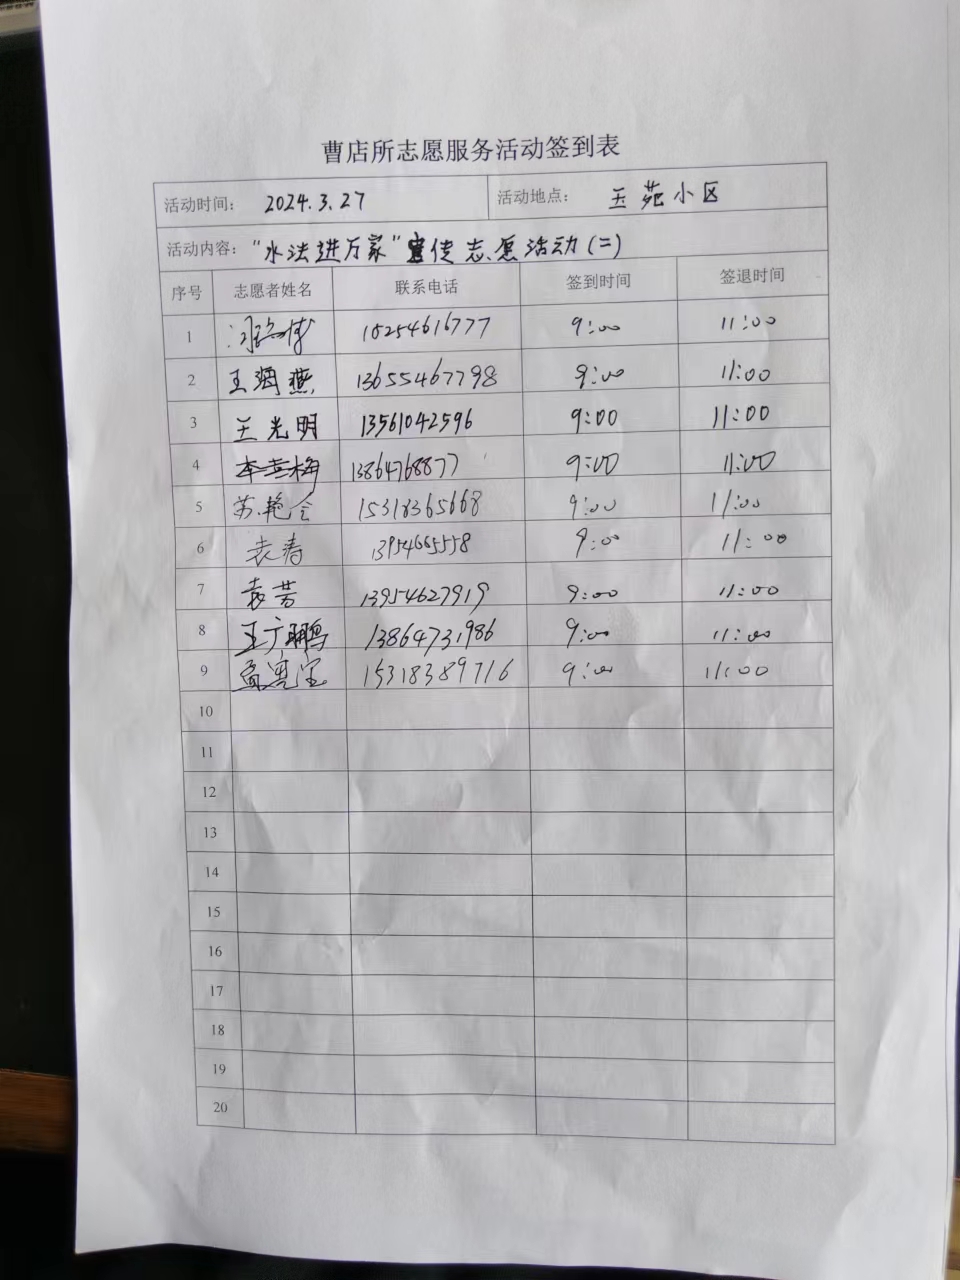 曹店所志愿服务活动签到表
活动时间: 2024.3.27 活动地点: 玉苑小区
活动内容: "水法进万家"宣传志愿活动(二)
序号 志愿者姓名 联系电话 签到时间 签退时间
1 15254616777 9:00 11:00
2 王海燕 13655467798 9:00 11:00
3 王光明 13561042596 9:00 11:00
4 李英梅 13864768877 9:00 11:00
5 苏艳会 15318365668 9:00 11:00
6 袁涛 13954665558 9:00 11:00
7 袁芳 13954627919 9:00 11:00
8 王广鹏 13864731986 9:00 11:00
9 15318389716 9:00 11:00
10
11
12
13
14
15
16
17
18
19
20